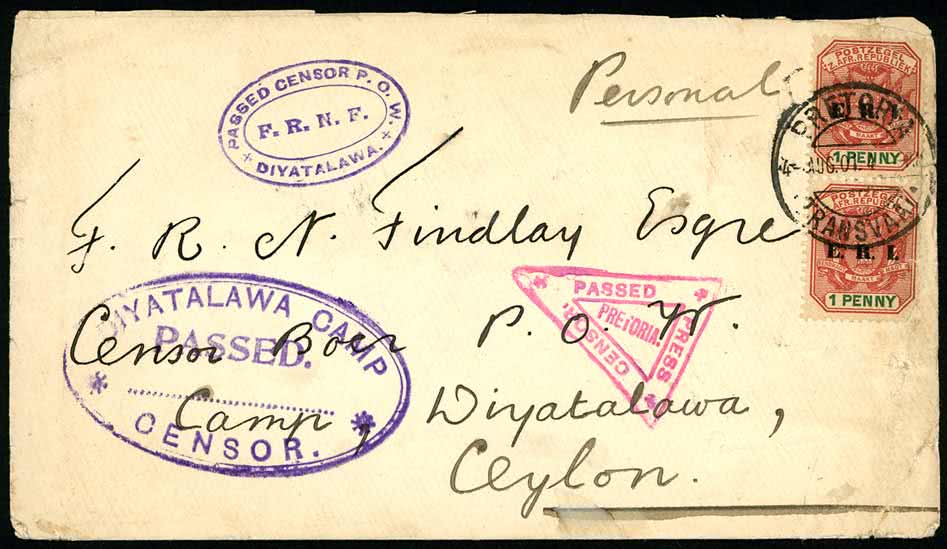 PASSED CENSOR P. O. W.
F. R. N. F.
DIYATALAWA.
Personal
POSTZEGEL
Z. AFR. REPUBLIEK
E. R. I.
1 PENNY
PRETORIA
AUG. 01
TRANSVAAL
POSTZEGEL
E. R. I.
1 PENNY
F. R. N. Findlay Esqre
Censor Boer P. O. W.
Camp, Diyatalawa,
Ceylon.
DIYATALAWA CAMP
PASSED.
CENSOR.
PASSED
PRESS
CENSOR.
PRETORIA.